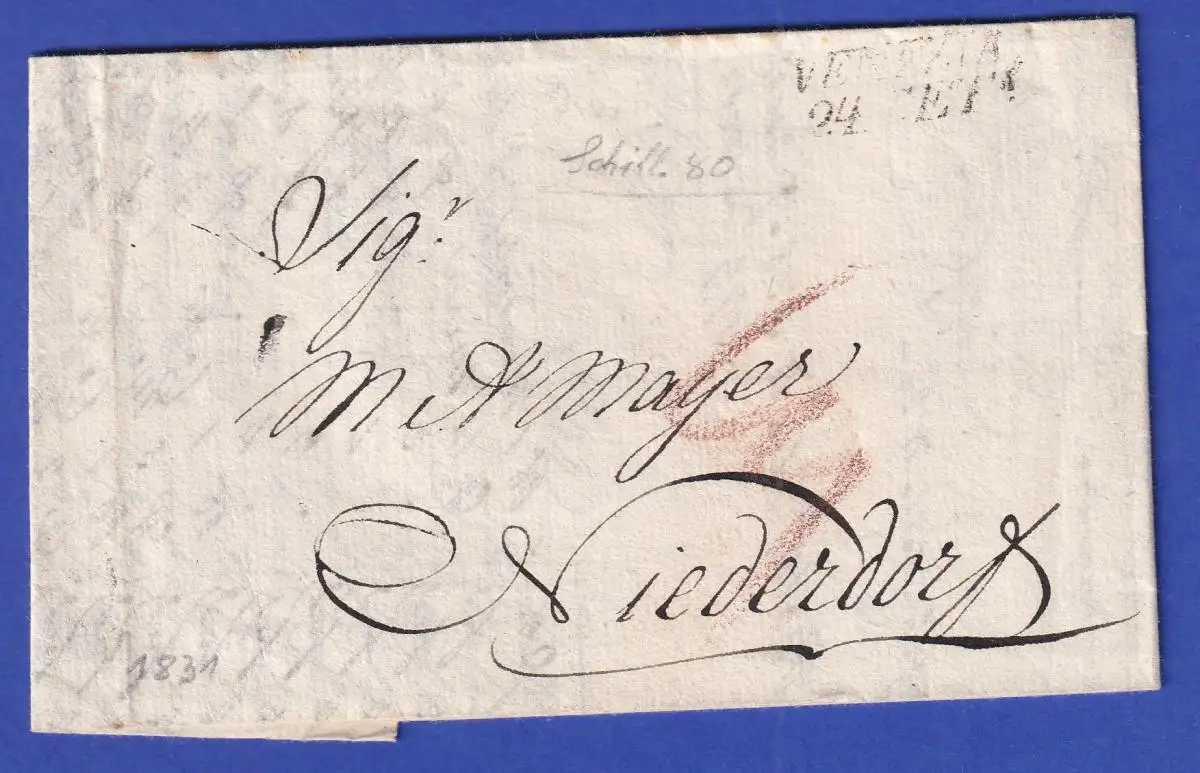 VENEZIA
24 SETT.
Schill. 80
Sig.r
M. A. Mayer
Niederdorf
1831